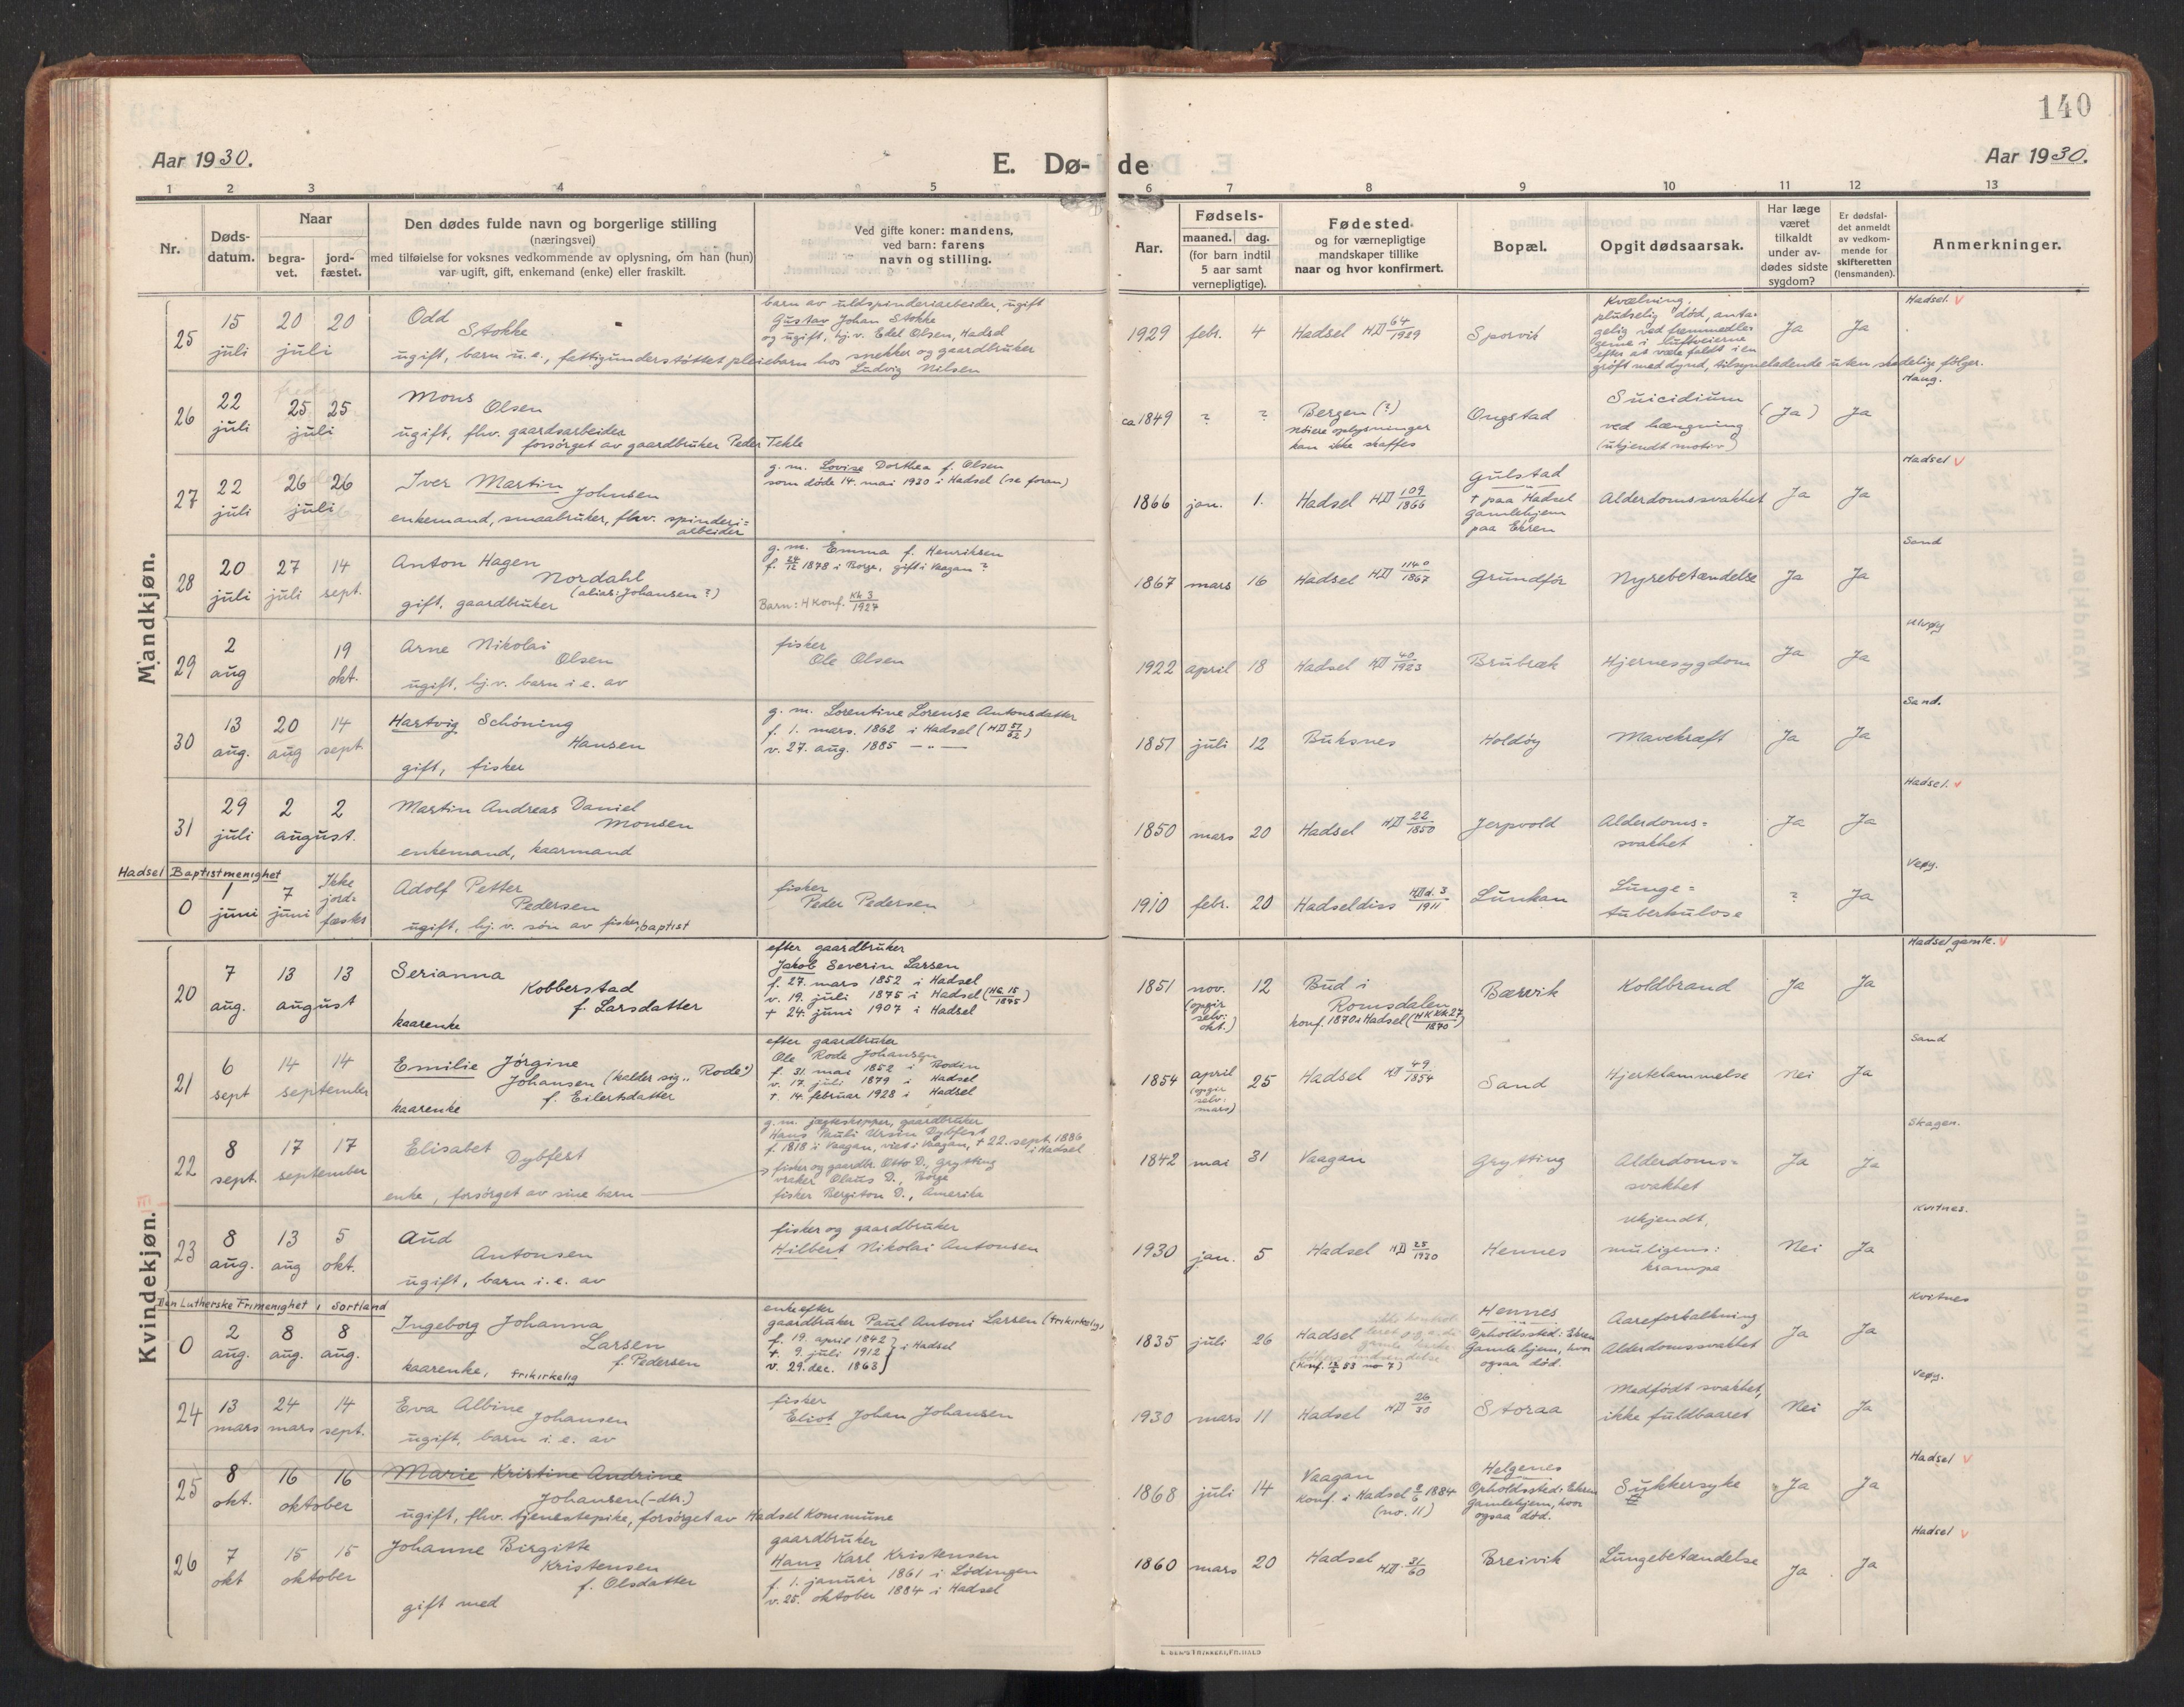 140
Aar 1930.
E. Dø-
de
Aar 1930.
1 2 3 4 5 6 7 8 9 10 11 12 13
Nr.
Døds-
datum.
Naar
begra-
vet.
jord-
fæstet.
Den dødes fulde navn og borgerlige stilling
(næringsvei)
med tilføielse for voksnes vedkommende av oplysning, om han (hun)
var ugift, gift, enkemand (enke) eller fraskilt.
Ved gifte koner: mandens,
ved barn: farens
navn og stilling.
Aar.
Fødsels-
maaned. dag.
(for barn indtil
5 aar samt
vernepligtige).
Fødested.
og for værnepligtige
mandskaper tillike
naar og hvor konfirmert.
Bopæl.
Opgit dødsaarsak.
Har læge
været
tilkaldt
under av-
dødes sidste
sygdom?
Er dødsfal-
det anmeldt
av vedkom-
mende for
skifteretten
(lensmanden).
Anmerkninger.
Mandkjøn.
25
15
juli
20 20
juli
Odd
Stokke
ugift, barn u.e., fattigunderstøttet pleiebarn hos snekker og gaardbruker
Ludvig Nilsen
barn av uldspinderiarbeider, ugift
Gustav Johan Stokke
og ugift, hj.v. Edel Olsen, Hadsel
1929 febr. 4
Hadsel HD 64/1929
Sporvik
Kvælning,
plutselig død, anta-
gelig ved fremmedle-
geme i luftveierne
efter at være faldt i en
grøft med dynd, tilsyneladende uten skadelige følger.
Ja
Ja
Hadsel. v
26
22
juli
25 25
juli
Mons
Olsen
ugift, fhv. gaardsarbeider
forsørget av gaardbruker Peder Tekle
ca 1849 ? ?
Bergen (?)
nøiere oplysninger
kan ikke skaffes
Ongstad
Suicidium
ved hængning
(ukjendt motiv)
(Ja)
Ja
Haug.
27
22
juli
26 26
juli
Iver Martin
Johnsen
enkemand, smaabruker, fhv. spinderi=
arbeider
g. m. Lovise Dorthea f. Olsen
som døde 14. mai 1930 i Hadsel (se foran)
1866 jan. 1.
Hadsel HD 109/1866
Gulstad
+ paa Hadsel
gamlehjem
paa Ekren
Alderdomssvakhet
Ja
Ja
Hadsel v
28
20
juli
27
juli
14
sept.
Anton Hagen
Nordahl
(alias: Johansen?)
gift. gaardbruker
g. m. Emma f. Henriksen
f. 24/12 1878 i Borge, gift i Vaagan?
Barn: H Konf. Kk 3/1927
1867 mars 16
Hadsel HD 1140/1867
Grundfør
Nyrebetændelse
Ja
Ja
Sand
29
2
aug
19
okt.
Arne Nikolai
Olsen
ugift, hj.v. barn i e. av
fisker
Ole Olsen
1922 april 18
Hadsel HD 40/1923
Brubræk
Hjernesygdom
Ja
Ja
Ulvøy
30
13
aug.
20
aug
14
sept.
Hartvig Schöning
Hansen
gift, fisker
g. m. Lorentine Lorense Antonsdatter
f. 1. mars. 1862 i Hadsel (HD 51/62)
v. 27. aug. 1885 — " —
1851 juli 12
Buksnes
Holdøy
Mavekræft
Ja
Ja
Sand.
31
29
juli
2 2
august.
Martin Andreas Daniel
Monsen
enkemand, kaarmand
1850 mars 20
Hadsel HD 22/1850
Jerpvold
Alderdoms=
svakhet
Ja
Ja
Hadsel. v
Hadsel Baptistmenighet
0
1
juni
7
juni
Ikke
jord=
fæstet
Adolf Petter
Pedersen
ugift, hj. v. søn av fisker, baptist
fisker
Peder Pedersen
1910 febr. 20
Hadseldiss HDd. 3/1911
Lunkan
Lunge=
tuberkulose
?
Ja
Vegg.
Kvindekjøn.
20
7
aug.
13 13
august
Serianna
Kobberstad
f. Larsdatter
kaarenke
efter gaardbruker
Jakob Severin Larsen
f. 27. mars 1852 i Hadsel
v. 19. juli 1875 i Hadsel (HG. 15/1875)
+ 24. juni 1907 i Hadsel
1851 nov. 12
(opgir
selv:
okt.)
Bud i
Romsdalen
konf. 1870 i Hadsel (HK kk 27/1870)
Bærvik
Koldbrand
Ja
Ja
Hadsel gamle. v
21
6
sept
14 14
september
Emilie Jörgine
Johansen (kalder sig „Rode")
f. Eilertsdatter
kaarenke
efter gaardbruker
Ole Rode Johansen
f. 31. mai 1852 i Bodin
v. 17. juli 1879 i Hadsel
+. 14. februar 1928 i Hadsel
1854 april 25
(opgir
selv:
mars)
Hadsel HD 49/1854
Sand
Hjertelammelse
Nei
Ja
Sand
22
8
sept.
17 17
september
Elisabet
Dybfest
enke, forsørget av sine barn
g. m. jægteskipper, gaardbruker
Hans Muli Ursin Dybfest
f. 1818 i Vaagan, viet i Vaagan, + 22. sept. 1886
i Hadsel
fisker og gaardbr. Otto D., Grytting
vraker Olaus D., Borge
fisker Bergiton D., Amerika
1842 mai 31
Vaagan
Grytting
Alderdoms=
svakhet
Ja
Ja
Skagen.
23
8
aug.
13
aug
5
okt.
Aud
Antonsen
ugift, barn i. e. av
fisker og gaardbruker
Hilbert Nikolai Antonsen
1930 jan. 5
Hadsel HD 25/1930
Hennes
Ukjendt,
muligens:
krampe
Nei
Ja
Kvitnes.
Den Lutherske Frimenighet i Sortland
0
2
aug.
8
aug.
8
aug.
Ingeborg Johanna
Larsen
f. Pedersen
kaarenke, frikirkelig
enke efter
gaardbruker Paul Antoni Larsen (frikirkelig)
f. 19. april 1842
+. 9. juli 1912 } i Hadsel
v. 29. dec. 1863
1835 juli 26
Hadsel
(Konf. 53 no 7)
Hennes
Opholdssted: Ekren
Gamlehjem, hvor
ogsaa død.
Aareforkalkning
Alderdomssvakhet
Ja
Ja
Kvitnes
24
13
mars
24
mars
14
sept.
Eva Albine
Johansen
ugift, barn i. e. av
fisker
Eliot Johan Johansen
1930 mars 11
Hadsel HD 26/30
Storaa
Medfødt svakhet,
ikke fuldbaaret
Nei
Ja
Vegg.
25
8
okt.
16 16
oktober
Marie Kristine Andrine
Johansen (-dtr.)
ugift, fhv. tjenestepike, forsørget av Hadsel Kommune
1868 juli 14
Vaagan
Konf. i Hadsel 1884
(no. 11)
Helgenes
Opholdssted: Ekren
Gamlehjem, hvor
ogsaa død.
Sukkersyke
Ja
Ja
Hadsel v
26
7
okt
15 15
oktober
Johanne Birgitte
Kristensen
f. Olsdatter
gift med
gaardbruker
Hans Karl Kristensen
f. 1. januar 1861 i Lödingen
v. 25. oktober 1884 i Hadsel
1860 mars 20
Hadsel
HD 31/60
Breivik
Lungebetændelse
Ja
Ja
Hadsel v